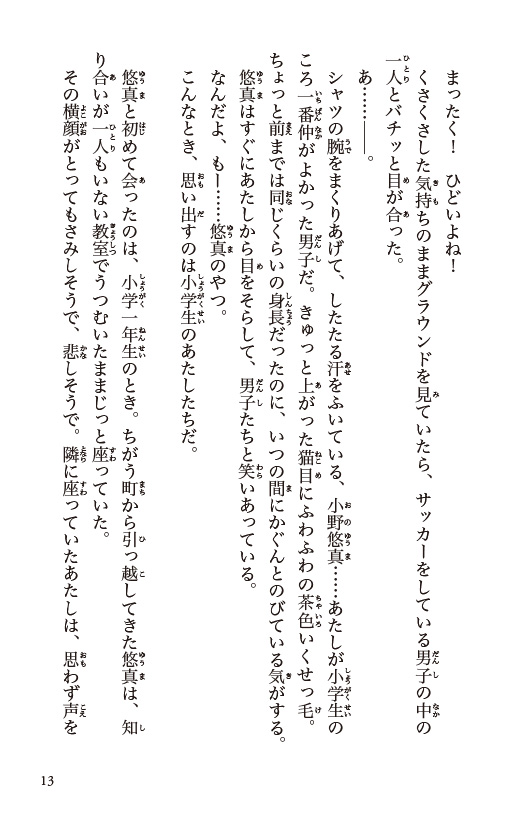 まったく！　ひどいよね！
くさくさした気持ちのままグラウンドを見ていたら、サッカーをしている男子の中の
一人とバチッと目が合った。
あ……――。
シャツの腕をまくりあげて、したたる汗をふいている、小野悠真……あたしが小学生の
ころ一番仲がよかった男子だ。きゅっと上がった猫目にふわふわの茶色いくせっ毛。
ちょっと前までは同じくらいの身長だったのに、いつの間にかぐんとのびている気がする。
悠真はすぐにあたしから目をそらして、男子たちと笑いあっている。
なんだよ、もー……悠真のやつ。
こんなとき、思い出すのは小学生のあたしたちだ。
悠真と初めて会ったのは、小学一年生のとき。ちがう町から引っ越してきた悠真は、知
り合いが一人もいない教室でうつむいたままじっと座っていた。
その横顔がとってもさみしそうで、悲しそうで。隣に座っていたあたしは、思わず声を
13